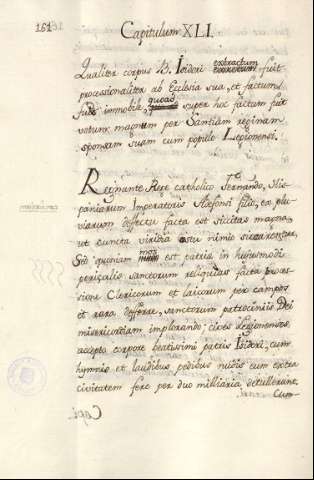 161
Capitulum XLI.
Qualiter corpus B. Isidori extractum fuit
processionaliter ab Ecclesia sua, et factum
fuit immobile, quoad super hoc factum fuit
votum magnum per Santiam reginam
sponsam suam cum populo Legionensi.
Regnante Rege catholico Fernando, His-
paniarum Imperatoris Ildefonsi filio, ex plu-
viarum deffectu facta est siccitas magna
ut cuncta viridia estu nimio siccarentur,
Sed quoniam mos est patria in huiusmodi
periculis sanctorum reliquias facta proces-
sione Clericorum et laicorum per campos
et rura defferre, sanctorum patrociniis Dei
misericordiam implorando; cives Legionenses
accepto corpore beatissimi patris Isidori, cum
hymnis et laudibus pedibus nudis eum extra
civitatem fere per duo milliaria detullerunt.
Cum-